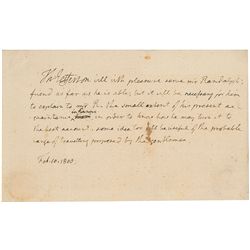 Th: Jefferson will with pleasure serve mr Randolph's
friend as far as he is able; but it will be necessary for him
to explain to mr Th the small extent of his present ac-
quaintance in order to know how he may turn it to
the best account. some idea too will be useful of the probable
range of travelling proposed by the gentleman.
Feb. 10. 1803.